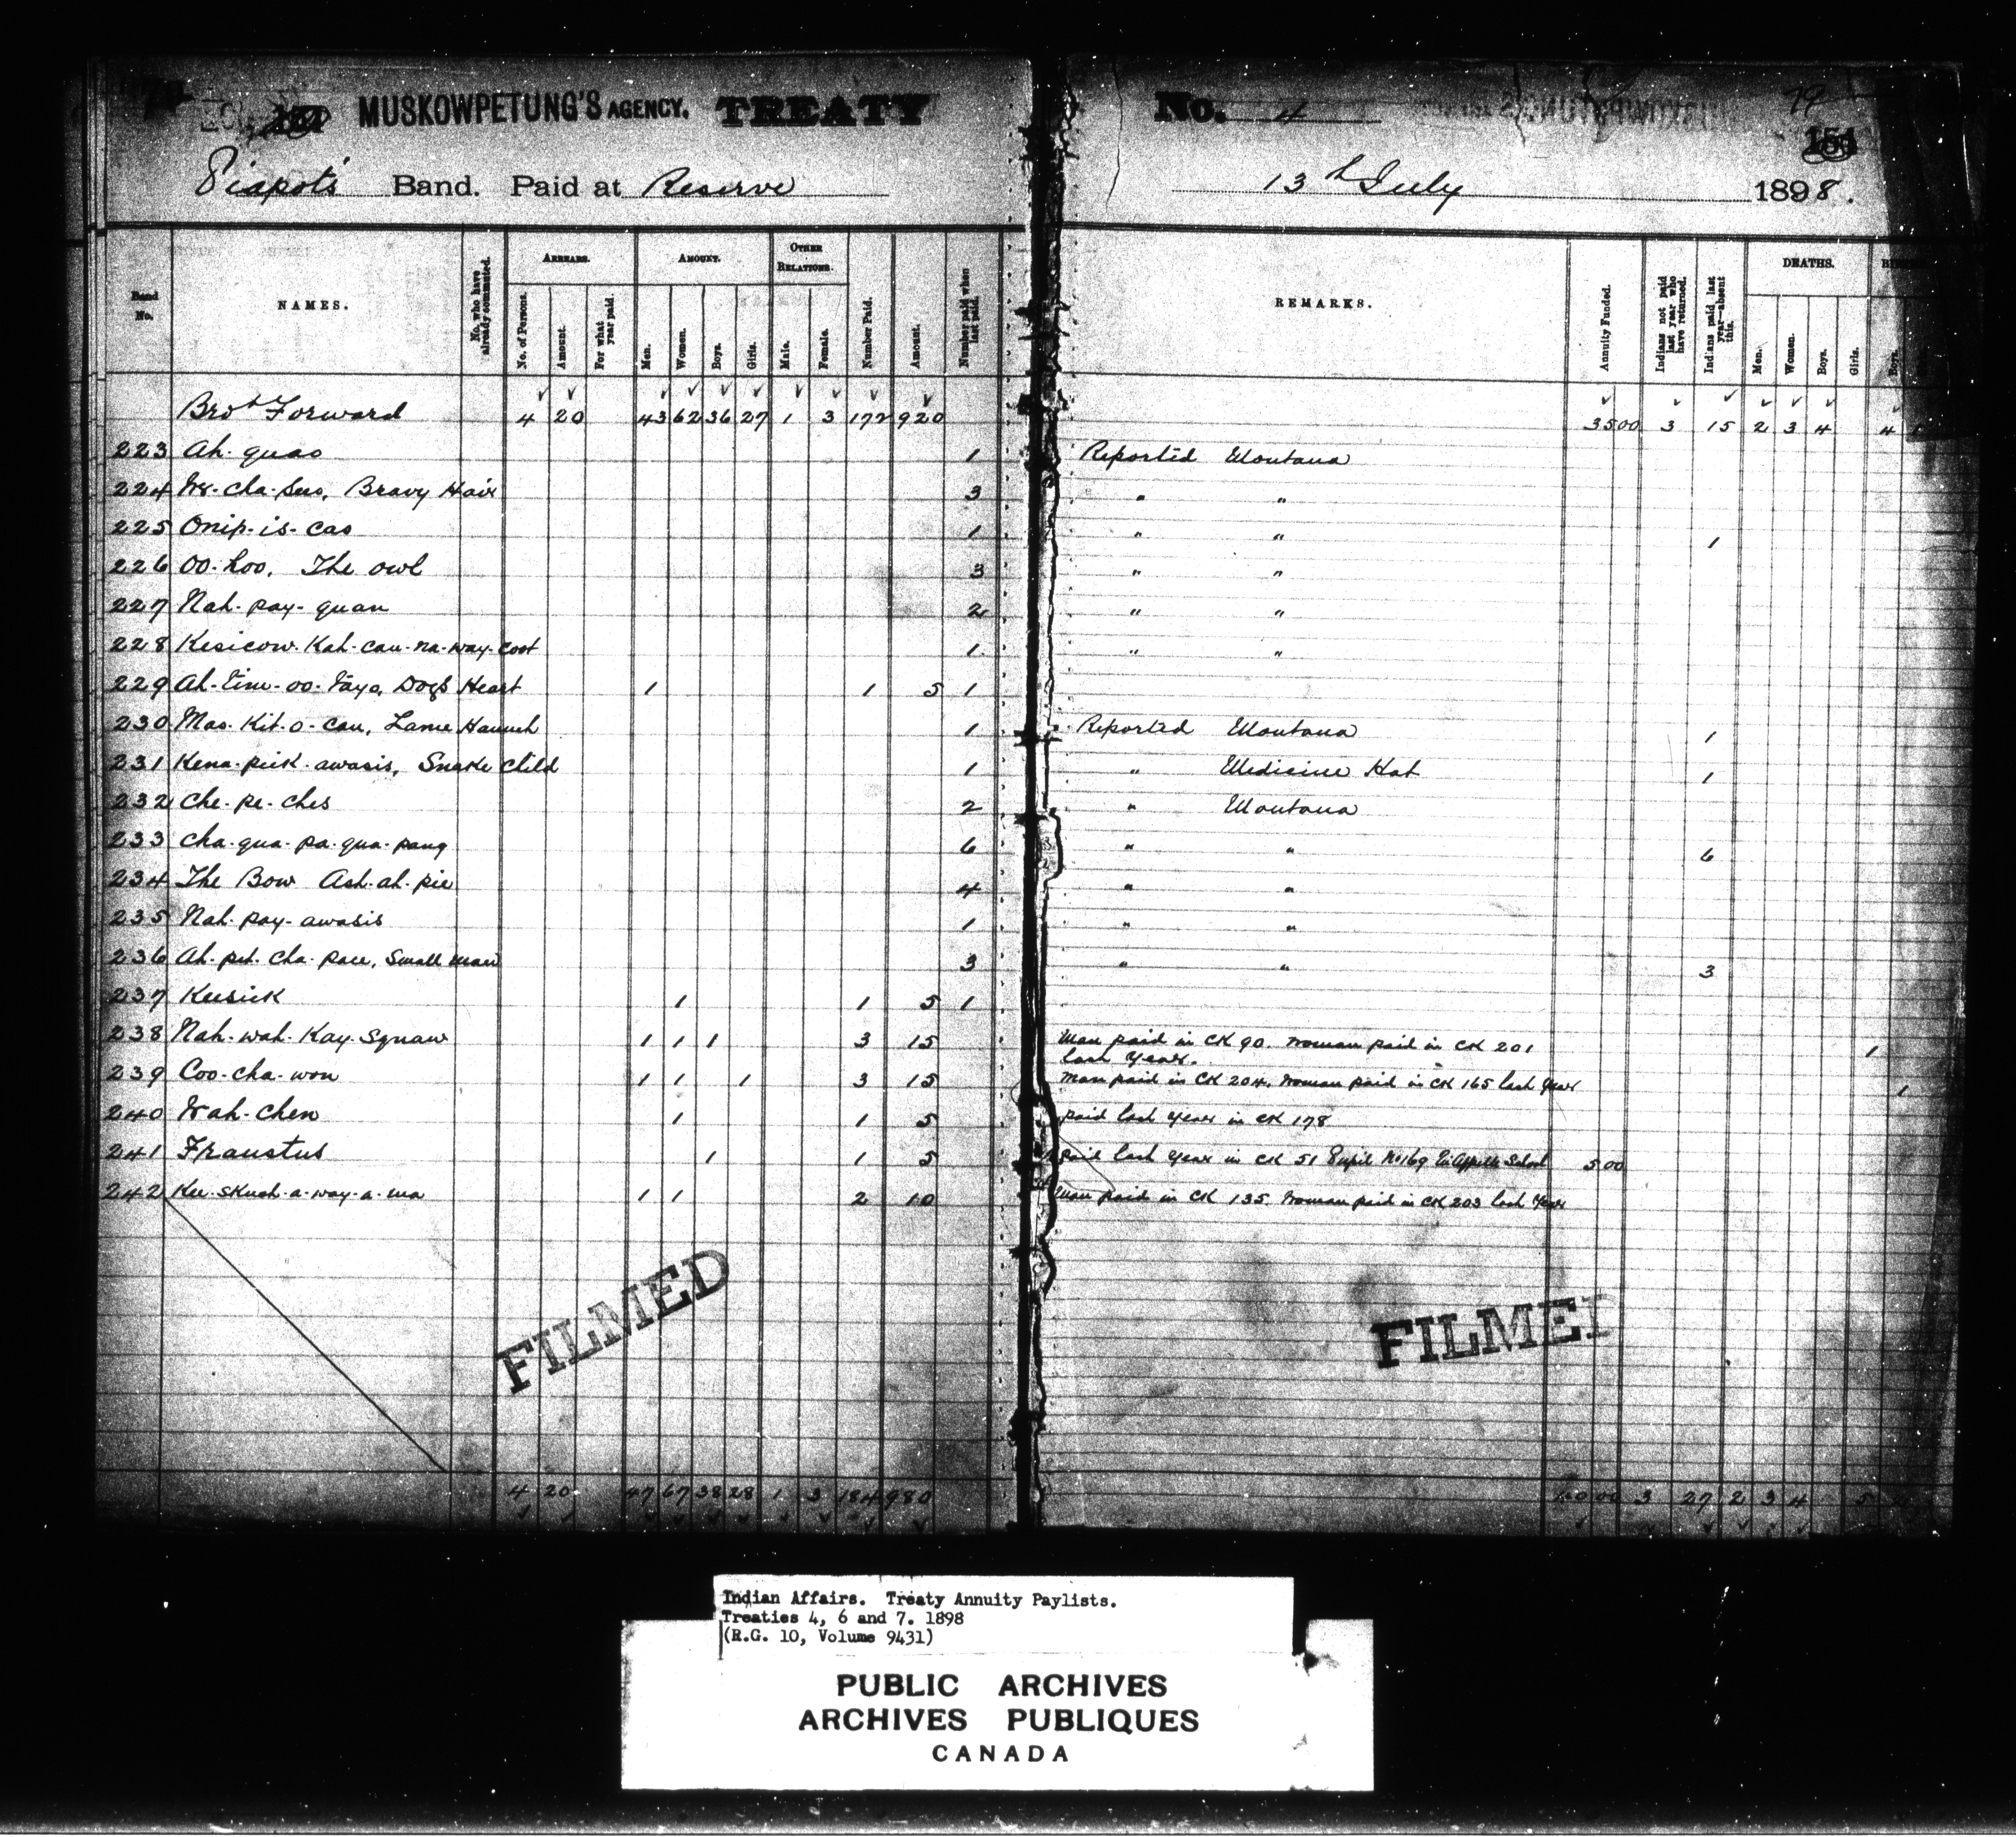 MUSKOWPETUNG'S AGENCY. TREATY No. 4 79
Piapot's Band. Paid at Reserve 13th July 1898.
Band No. NAMES. No. who have already commuted. ARREARS. No. of Persons. Amount. For what year paid. AMOUNT. Men. Women. Boys. Girls. OTHER RELATIONS. Male. Female. Number Paid. Amount. Number paid when last paid. REMARKS. Annuity Funded. Indians not paid last year who have returned. Indians paid last year—absent this. DEATHS. Men. Women. Boys. Girls. Boys.
Brot Forward 4 20 43 62 36 27 1 3 172 920 35 00 3 15 2 3 4 4
223 Ah. quas 1 Reported Montana
224 We-cha-sus, Bravy Hair 3 " "
225 Onip-is-cas 1 " " 1
226 OO-hoo, The owl 3 " "
227 Nah-pay-quan 2 " "
228 Kesicow-Kah-cau-na-way-coot 1 " "
229 Ah-tim-oo-tayo, Dogs Heart 1 1 5 1
230 Mas-Kit-o-cau, Lame Haunch 1 Reported Montana 1
231 Kena-peik-awasis, Snake Child 1 " Medicine Hat 1
232 Che-pe-ches 2 " Montana
233 Cha-qua-pa-qua-pang 6 " " 6
234 The Bow Ash-ah-pie 4 " "
235 Nah-pay-awasis 1 " "
236 Ah-pet-cha-pace, Small man 3 " " 3
237 Keesick 1 1 5 1
238 Nah-wah-Kay-Squaw 1 1 1 3 15 Man paid in CK 90. Woman paid in CK 201 last Year. 1
239 Coo-cha-won 1 1 1 3 15 Man paid in CK 204. Woman paid in CK 165 last Year 1
240 Wah-chen 1 1 5 paid last Year in CK 178
241 Fraustus 1 1 5 paid last Year in CK 51 Pupil No 169 Qu'Appelle School 5 00
242 Kee-skuch-a-way-a-ma 1 1 2 10 Man paid in CK 135. Woman paid in CK 203 last Year
FILMED
FILMED
4 20 47 67 38 28 1 3 184 980 40 00 3 27 2 3 4 5
Indian Affairs. Treaty Annuity Paylists.
Treaties 4, 6 and 7. 1898
(R.G. 10, Volume 9431)
PUBLIC ARCHIVES
ARCHIVES PUBLIQUES
CANADA